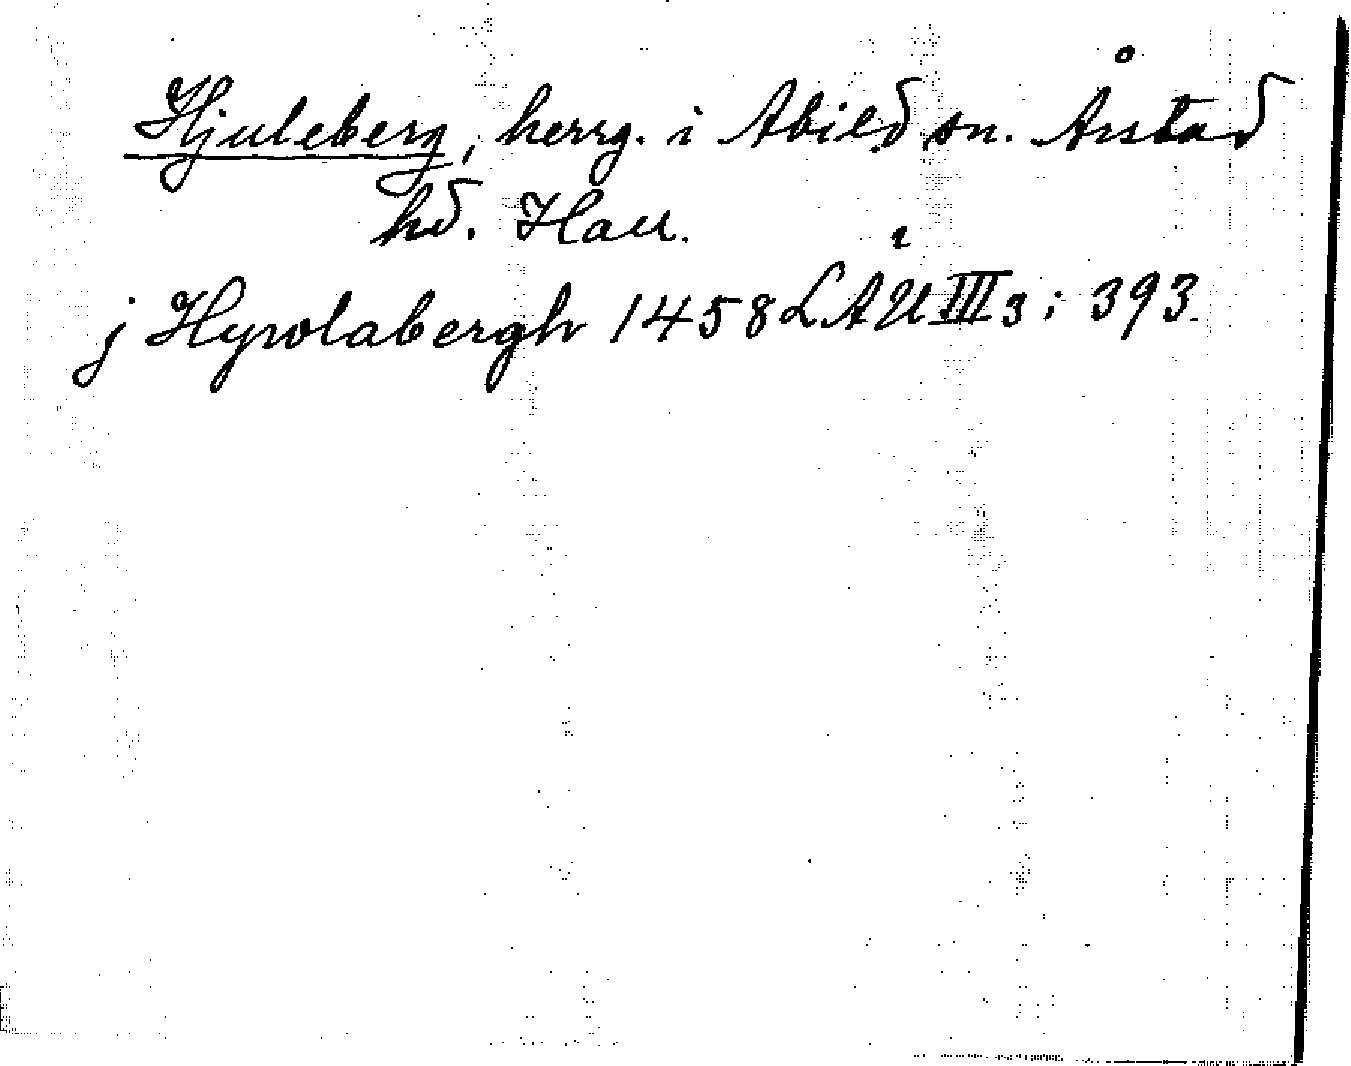 Hjuleberg, herrg. i Abild sn. Årstad
hd. Hall.
j Hywlabergh 1458 LÄU III3: 393.